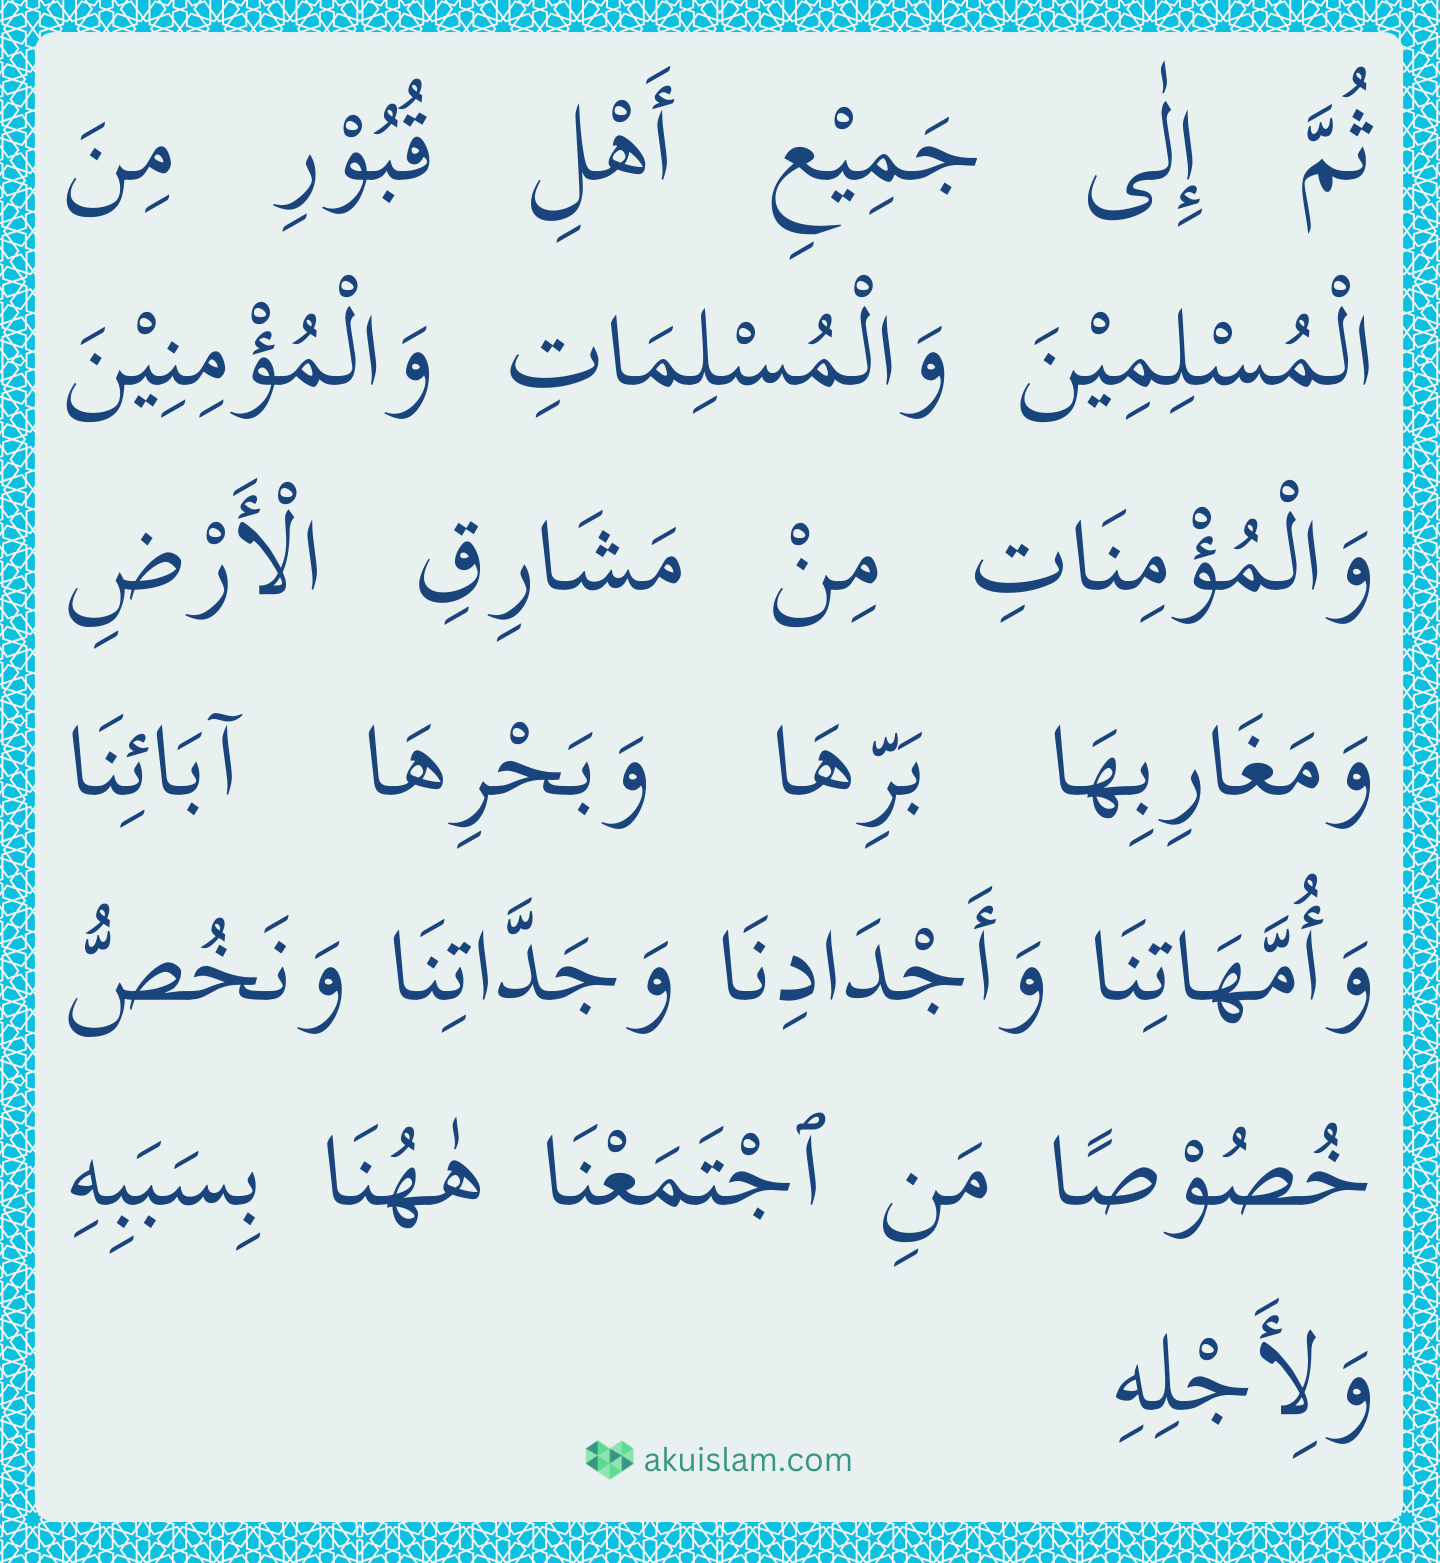 ثُمَّ إِلٰى جَمِيْعِ أَهْلِ قُبُوْرِ مِنَ
الْمُسْلِمِيْنَ وَالْمُسْلِمَاتِ وَالْمُؤْمِنِيْنَ
وَالْمُؤْمِنَاتِ مِنْ مَشَارِقِ الْأَرْضِ
وَمَغَارِبِهَا بَرِّهَا وَبَحْرِهَا آبَائِنَا
وَأُمَّهَاتِنَا وَأَجْدَادِنَا وَجَدَّاتِنَا وَنَخُصُّ
خُصُوْصًا مَنِ ٱجْتَمَعْنَا هٰهُنَا بِسَبَبِهِ
وَلِأَجْلِهِ
akuislam.com